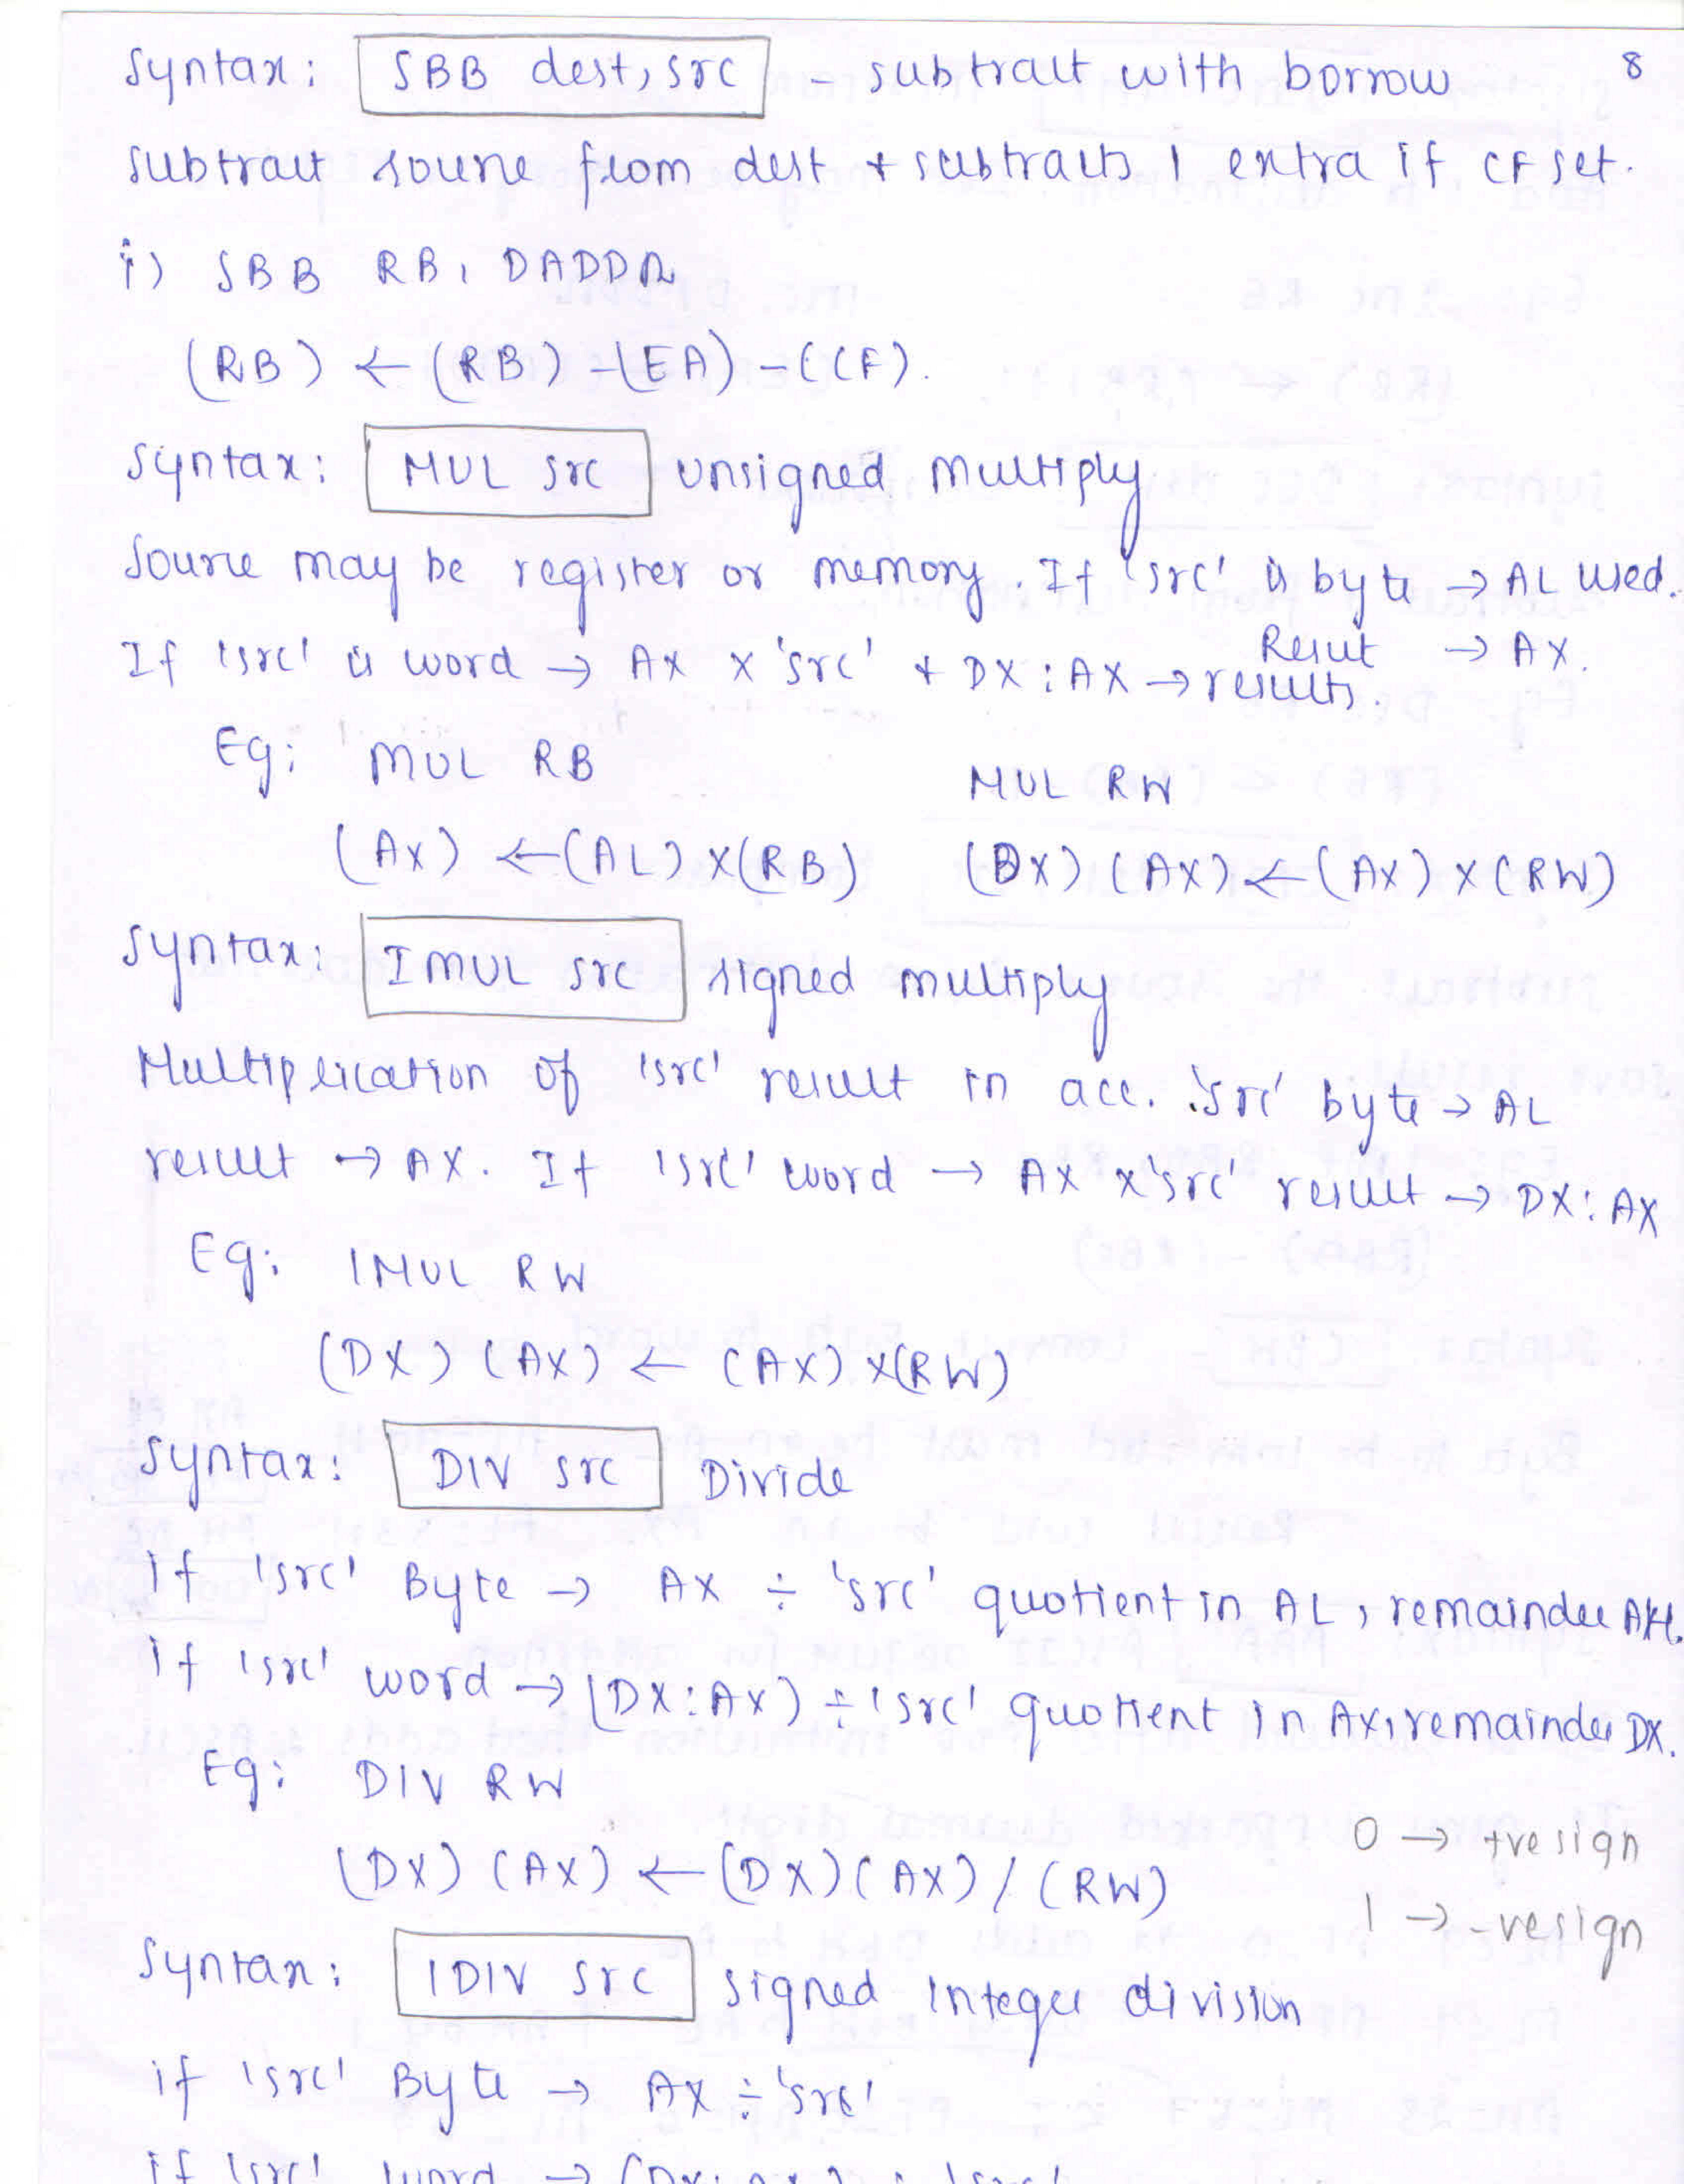 8
Syntax: SBB dest, src - subtract with borrow
Subtract source from dest + subtracts 1 extra if CF set.
i) SBB RB, DADDR
(RB) ← (RB) - (EA) - (CF).
Syntax: MUL src unsigned multiply
Source may be register or memory. If 'src' is byte → AL used.
Result → AX.
If 'src' is word → AX x 'src' + DX:AX → results.
Eg: MUL RB MUL RW
(AX) ← (AL) x (RB) (DX) (AX) ← (AX) x (RW)
Syntax: IMUL src signed multiply
Multiplication of 'src' result in acc. 'src' byte → AL
result → AX. If 'src' word → AX x 'src' result → DX: AX
Eg: IMUL RW
(DX) (AX) ← (AX) x (RW)
Syntax: DIV src Divide
if 'src' Byte → AX ÷ 'src' quotient in AL, remainder AH.
if 'src' word → (DX:AX) ÷ 'src' quotient in AX, remainder DX.
Eg: DIV RW
0 → +ve sign
(DX) (AX) ← (DX) (AX) / (RW)
1 → -ve sign
Syntax: IDIV src signed integer division
if 'src' Byte → AX ÷ 'src'
if 'src' word → (DX: AX) ÷ 'src'